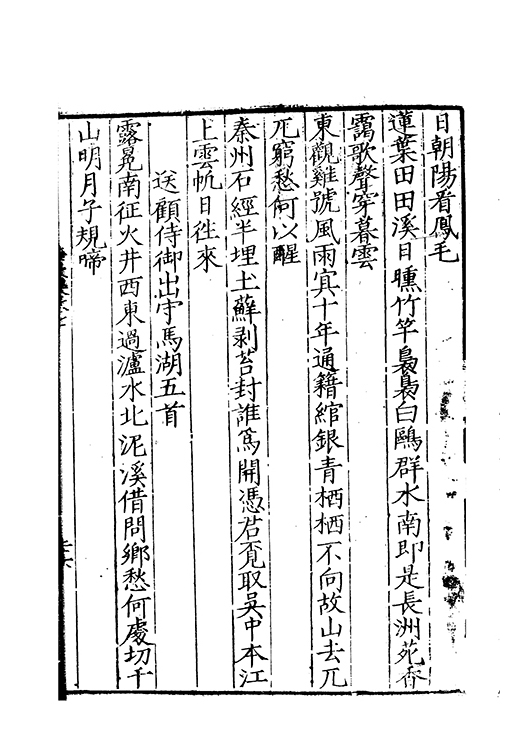 日朝陽看鳳毛
蓮葉田田溪日曛竹竿裊裊白鷗群水南即是長洲苑香
靄歌聲穿暮雲
東觀雞號風雨冥十年通籍綰銀青栖栖不向故山去兀
兀窮愁何以醒
秦州石經半埋土蘚剥苔封誰爲開憑君覔取吳中本江
上雲帆日徃來
送顧侍御出守馬湖五首
露冕南征火井西東過瀘水北泥溪借問鄉愁何處切千
山明月子規啼